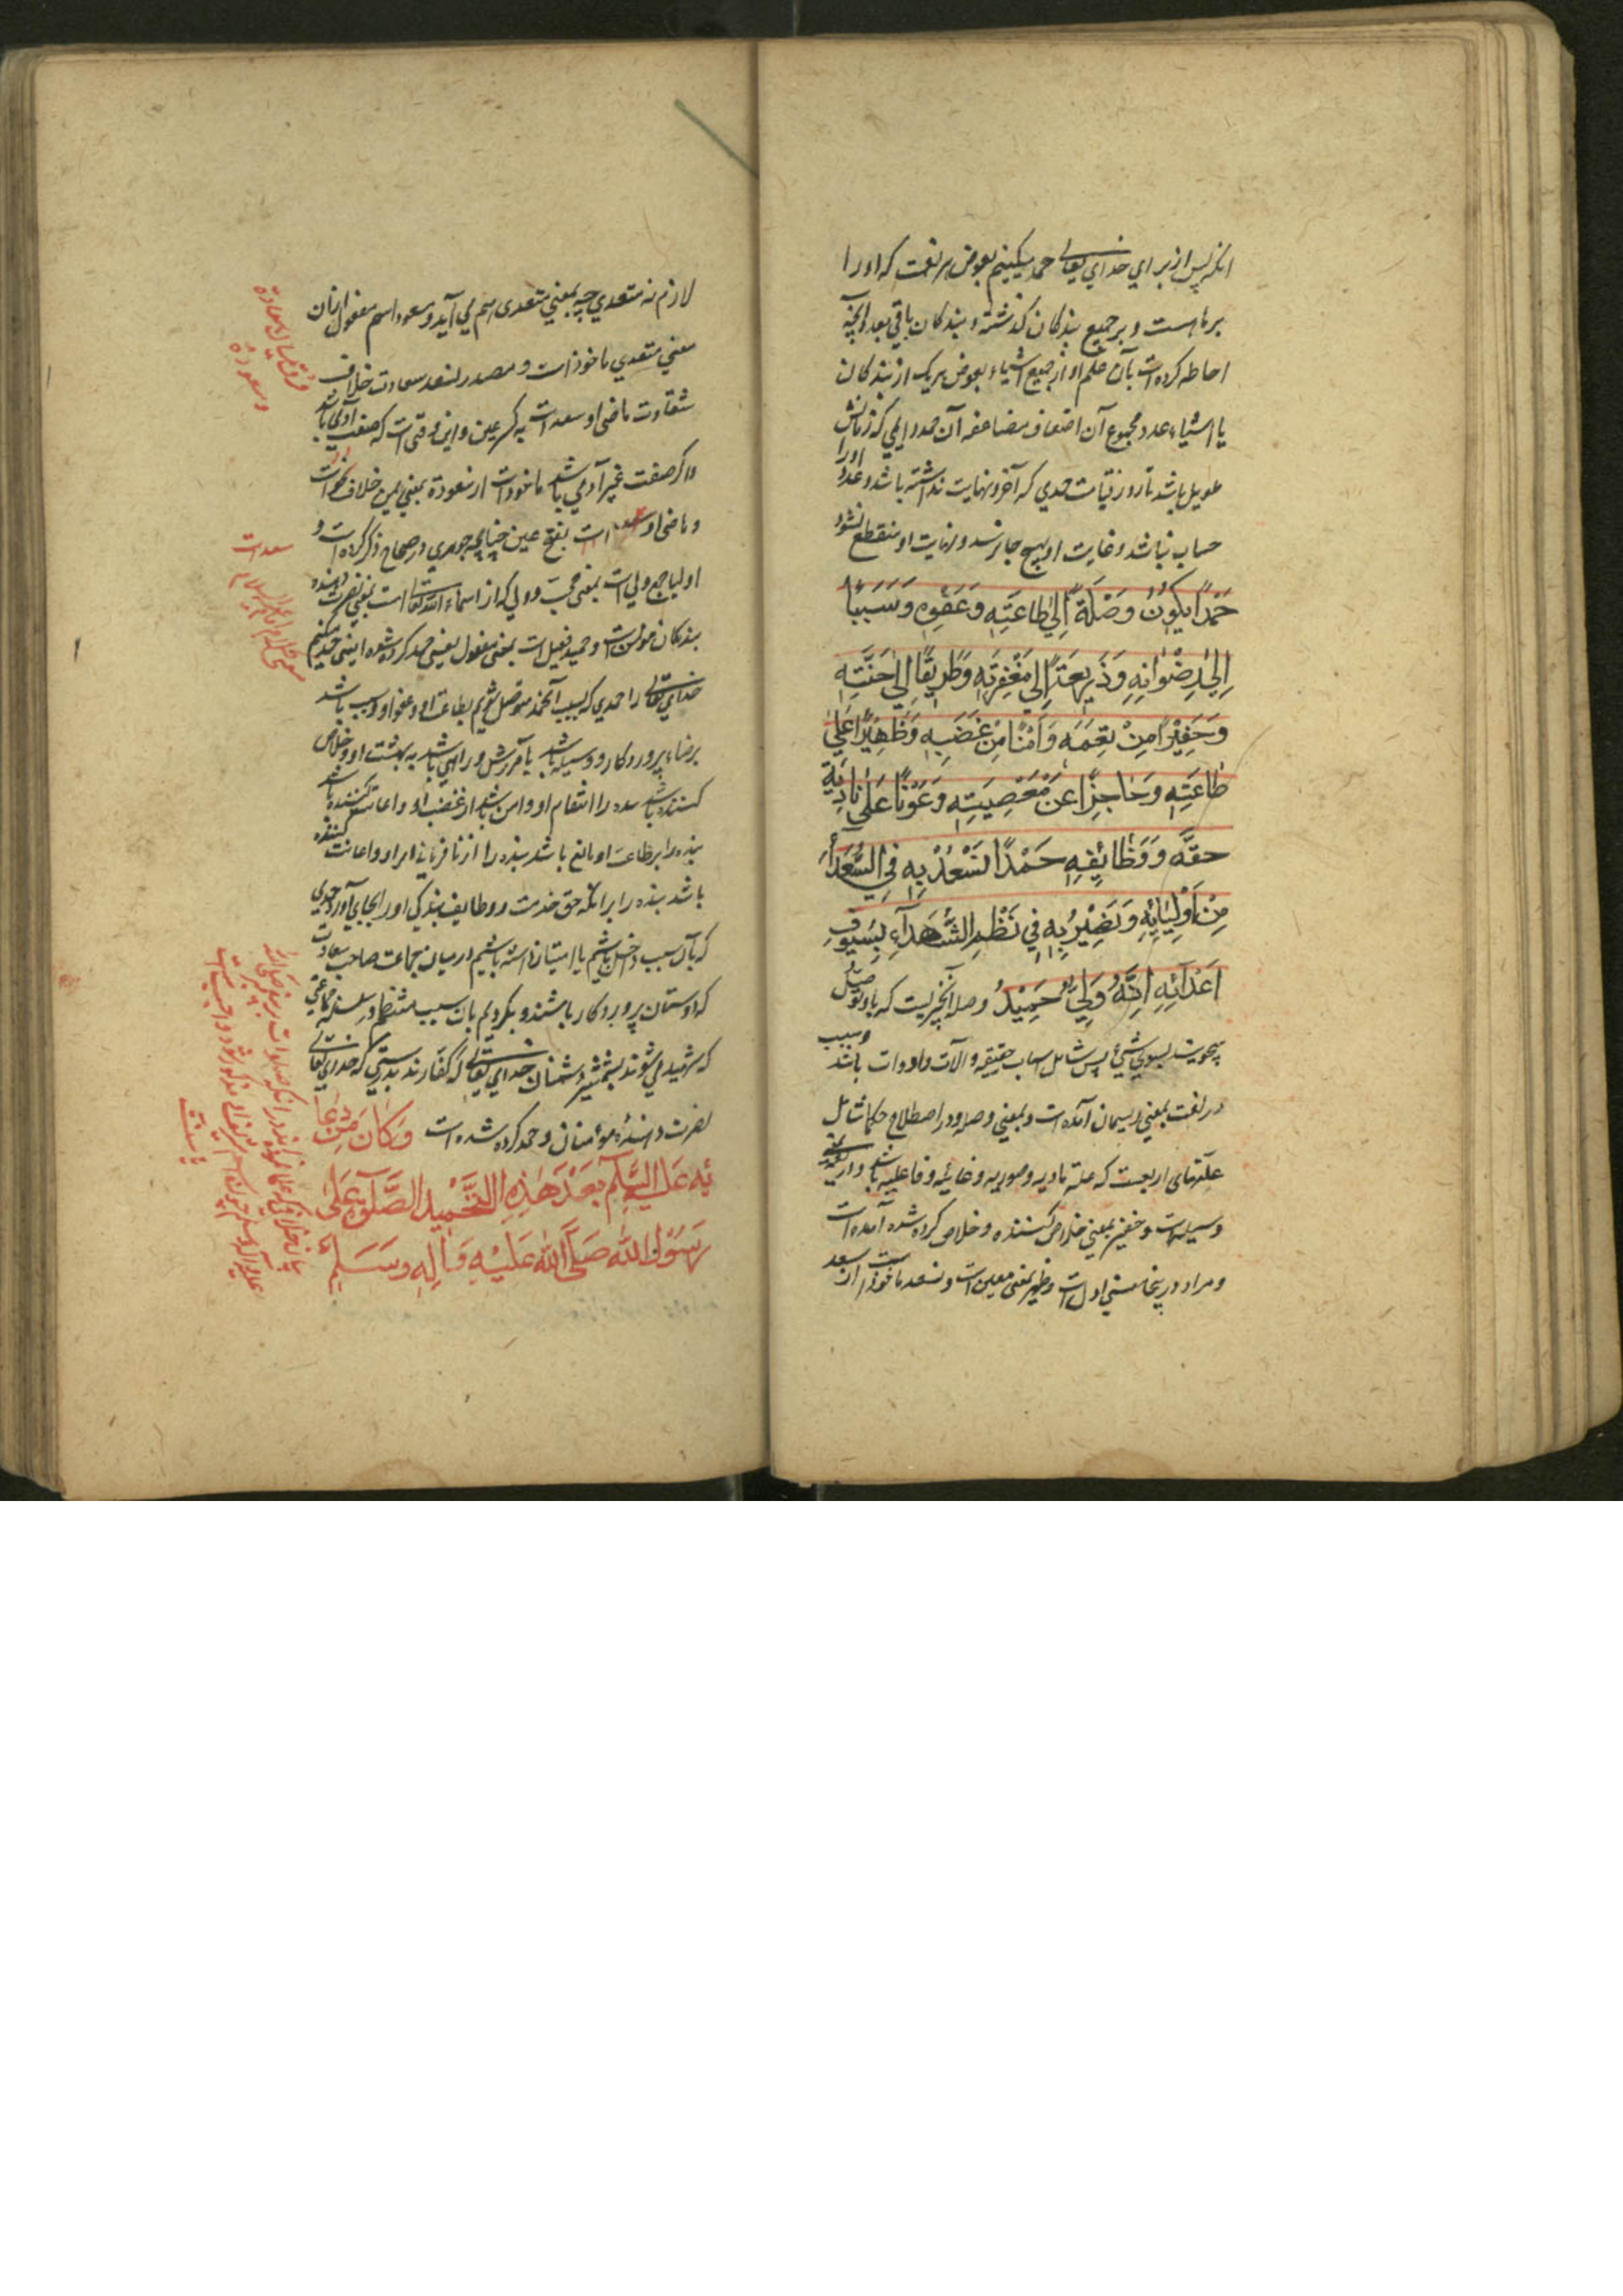 انکه پس از برای خدای تعالی حمد میکنیم بعوض هر نعمت که او را
بر ماست و بر جمیع بندکان کذشته و بندکان باقی بعدد آنچه
احاطه کرده است بآن علم او از جمیع اشیاء بعوض هر یک از بندکان
یا اشیاء عدد مجموع آن اضعاف مضاعفه آن حمد دایمی که زمانش
طویل باشد تا روز قیامت حمدی که آخر و نهایت نداشته باشد و عدد او را
حساب نباشد و غایت او بهیچ جا نرسد و نهایت او منقطع نشود
حَمْدًا یَکُونُ وُصْلَةً اِلیٰ طَاعَتِهِ وَعَفْوِهِ وَسَبَبًا
اِلیٰ رِضْوَانِهِ وَذَرِیعَةً اِلیٰ مَغْفِرَتِهِ وَطَرِیقًا اِلیٰ جَنَّتِهِ
وَخَفِیرًا مِنْ نِقْمَتِهِ وَاَمْنًا مِنْ غَضَبِهِ وَظَهِیرًا عَلیٰ
طَاعَتِهِ وَحَاجِزًا عَنْ مَعْصِیَتِهِ وَعَوْنًا عَلیٰ تَادِیَةِ
حقِّهِ وَوَظَائِفِهِ حَمْدًا نَسْعَدُ بِهِ فِی السُّعَدَاءِ
مِنْ اَوْلِیَائِهِ وَنَصِیرُ بِهِ فِی نَظْمِ الشُّهَدَآءِ بِسُیُوفِ
اَعْدَائِهِ اِنَّهُ وَلِیٌّ حَمِیدٌ وصله آنچیزیست که باو توصل
میجویند بسوی شیئ پس شامل اسباب حقیقیه و آلات و ادوات باشد و سبب
در لغت بمعنی ریسمان آمده است و بمعنی وصله و در اصطلاح حکما شامل
علتهای اربعست که علة مادیه و صوریه و غائیه و فاعلیه باشد و ذریعه بمعنی
وسیله است و خفیر بمعنی خلاص کننده و خلاص کرده شده آمده است
و مراد در اینجا معنی اول است و ظهیر بمعنی معین است و نسعد ماخوذ است از سعد
لازم نه متعدی چه بمعنی متعدی هم می آید و مسعود اسم مفعول از آن
معنی متعدی ماخوذ است و مصدر نسعد سعادت خلاف
شقاوت ماضی او سعد است به کسر عین و این وقتی است که صفت آدمی باشد
و اکر صفت غیر آدمی باشد ماخوذ است از سعودة بمعنی یمن خلاف نحوست
و ماضی او سعد است بفتح عین چنانچه جوهری در صحاح ذکر کرده است و
اولیا جمع ولی است بمعنی محب و ولی که از اسماء الله تعالی است بمعنی نصرت دهنده
بندکان مومن است و حمید فعیل است بمعنی مفعول یعنی حمد کرده شده یعنی حمد میکنیم
خدای تعالی را حمدی که بسبب آنحمد متوصل شویم بطاعت او و عفو او و سبب باشد
برضاء پروردکار و وسیله باشد بآمرزش و راهی باشد به بهشت او و خلاص
کننده باشد بنده را انتقام او و امن باشد از غضب او و اعانت کننده باشد
بنده را بر طاعت او مانع باشد بنده را از نافرمانی او و اعانت کننده
باشد بنده را بر انکه حق خدمت و وظایف بندکی او را بجای آورد حمدی
که بآن سبب داخل باشیم یا امتیاز داشته باشیم در میان جماعت صاحب سعادت
که دوستان پروردکار باشند و بکردیم بآن سبب منتظم در سلسله جماعتی
که شهید می شوند بشمشیر دشمنان خدای تعالی که کفارند بدرستی که خدای تعالی
نصرت دهندۀ مؤمنان و حمد کرده شده است وَکَانَ مِنْ دُعَا
ئِهِ عَلَیْهِ السَّلَامُ بَعْدَ هَذِهِ التَّحْمِیدِ الصَّلَوةُ عَلیٰ
رَسُولِ اللهِ صَلَّی اللهُ عَلَیْهِ وَآلِهِ وَسَلَّمَ
فرق میان سعادة
و سعودة
سعد است